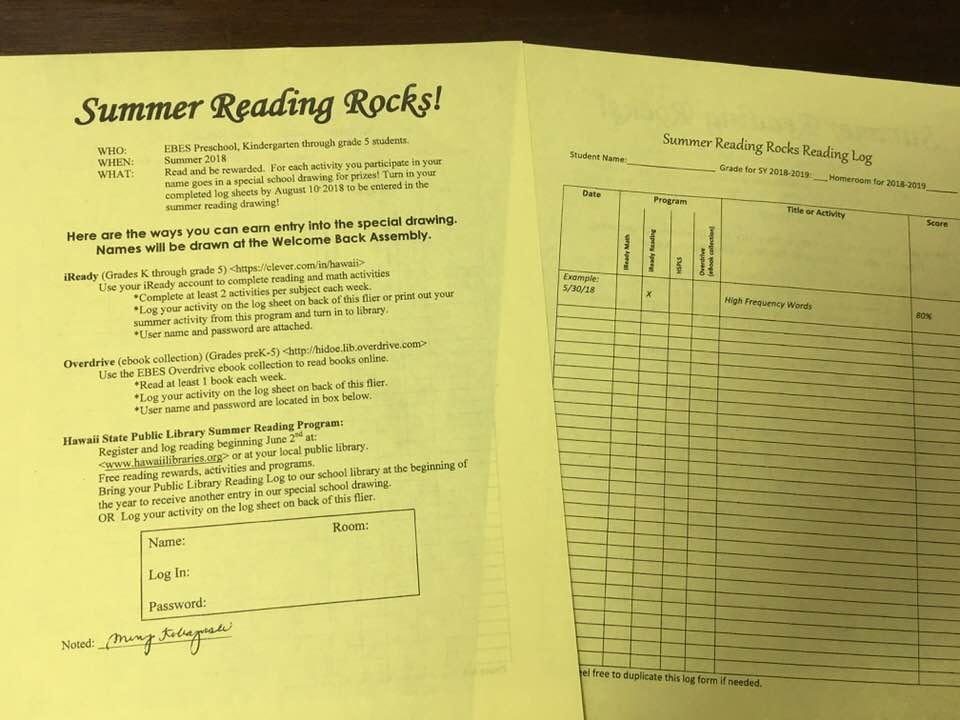 Summer Reading Rocks!
WHO: EBES Preschool, Kindergarten through grade 5 students.
WHEN: Summer 2018
WHAT: Read and be rewarded. For each activity you participate in your
name goes in a special school drawing for prizes! Turn in your
completed log sheets by August 10 2018 to be entered in the
summer reading drawing!
Here are the ways you can earn entry into the special drawing.
Names will be drawn at the Welcome Back Assembly.
iReady (Grades K through grade 5) <https://clever.com/in/hawaii>
Use your iReady account to complete reading and math activities
*Complete at least 2 activities per subject each week.
*Log your activity on the log sheet on back of this flier or print out your
summer activity from this program and turn in to library.
*User name and password are attached.
Overdrive (ebook collection) (Grades preK-5) <http://hidoe.lib.overdrive.com>
Use the EBES Overdrive ebook collection to read books online.
*Read at least 1 book each week.
*Log your activity on the log sheet on back of this flier.
*User name and password are located in box below.
Hawaii State Public Library Summer Reading Program:
Register and log reading beginning June 2nd at:
<www.hawaiilibraries.org> or at your local public library.
Free reading rewards, activities and programs.
Bring your Public Library Reading Log to our school library at the beginning of
the year to receive another entry in our special school drawing.
OR Log your activity on the log sheet on back of this flier.
Name: Room:
Log In:
Password:
Noted:
Summer Reading Rocks Reading Log
Student Name: Grade for SY 2018-2019: Homeroom for 2018-2019
Date Program Title or Activity Score
iReady Math
iReady Reading
HSPLS
Overdrive
(eBook collection)
Example:
5/30/18 X High Frequency Words 80%
feel free to duplicate this log form if needed.